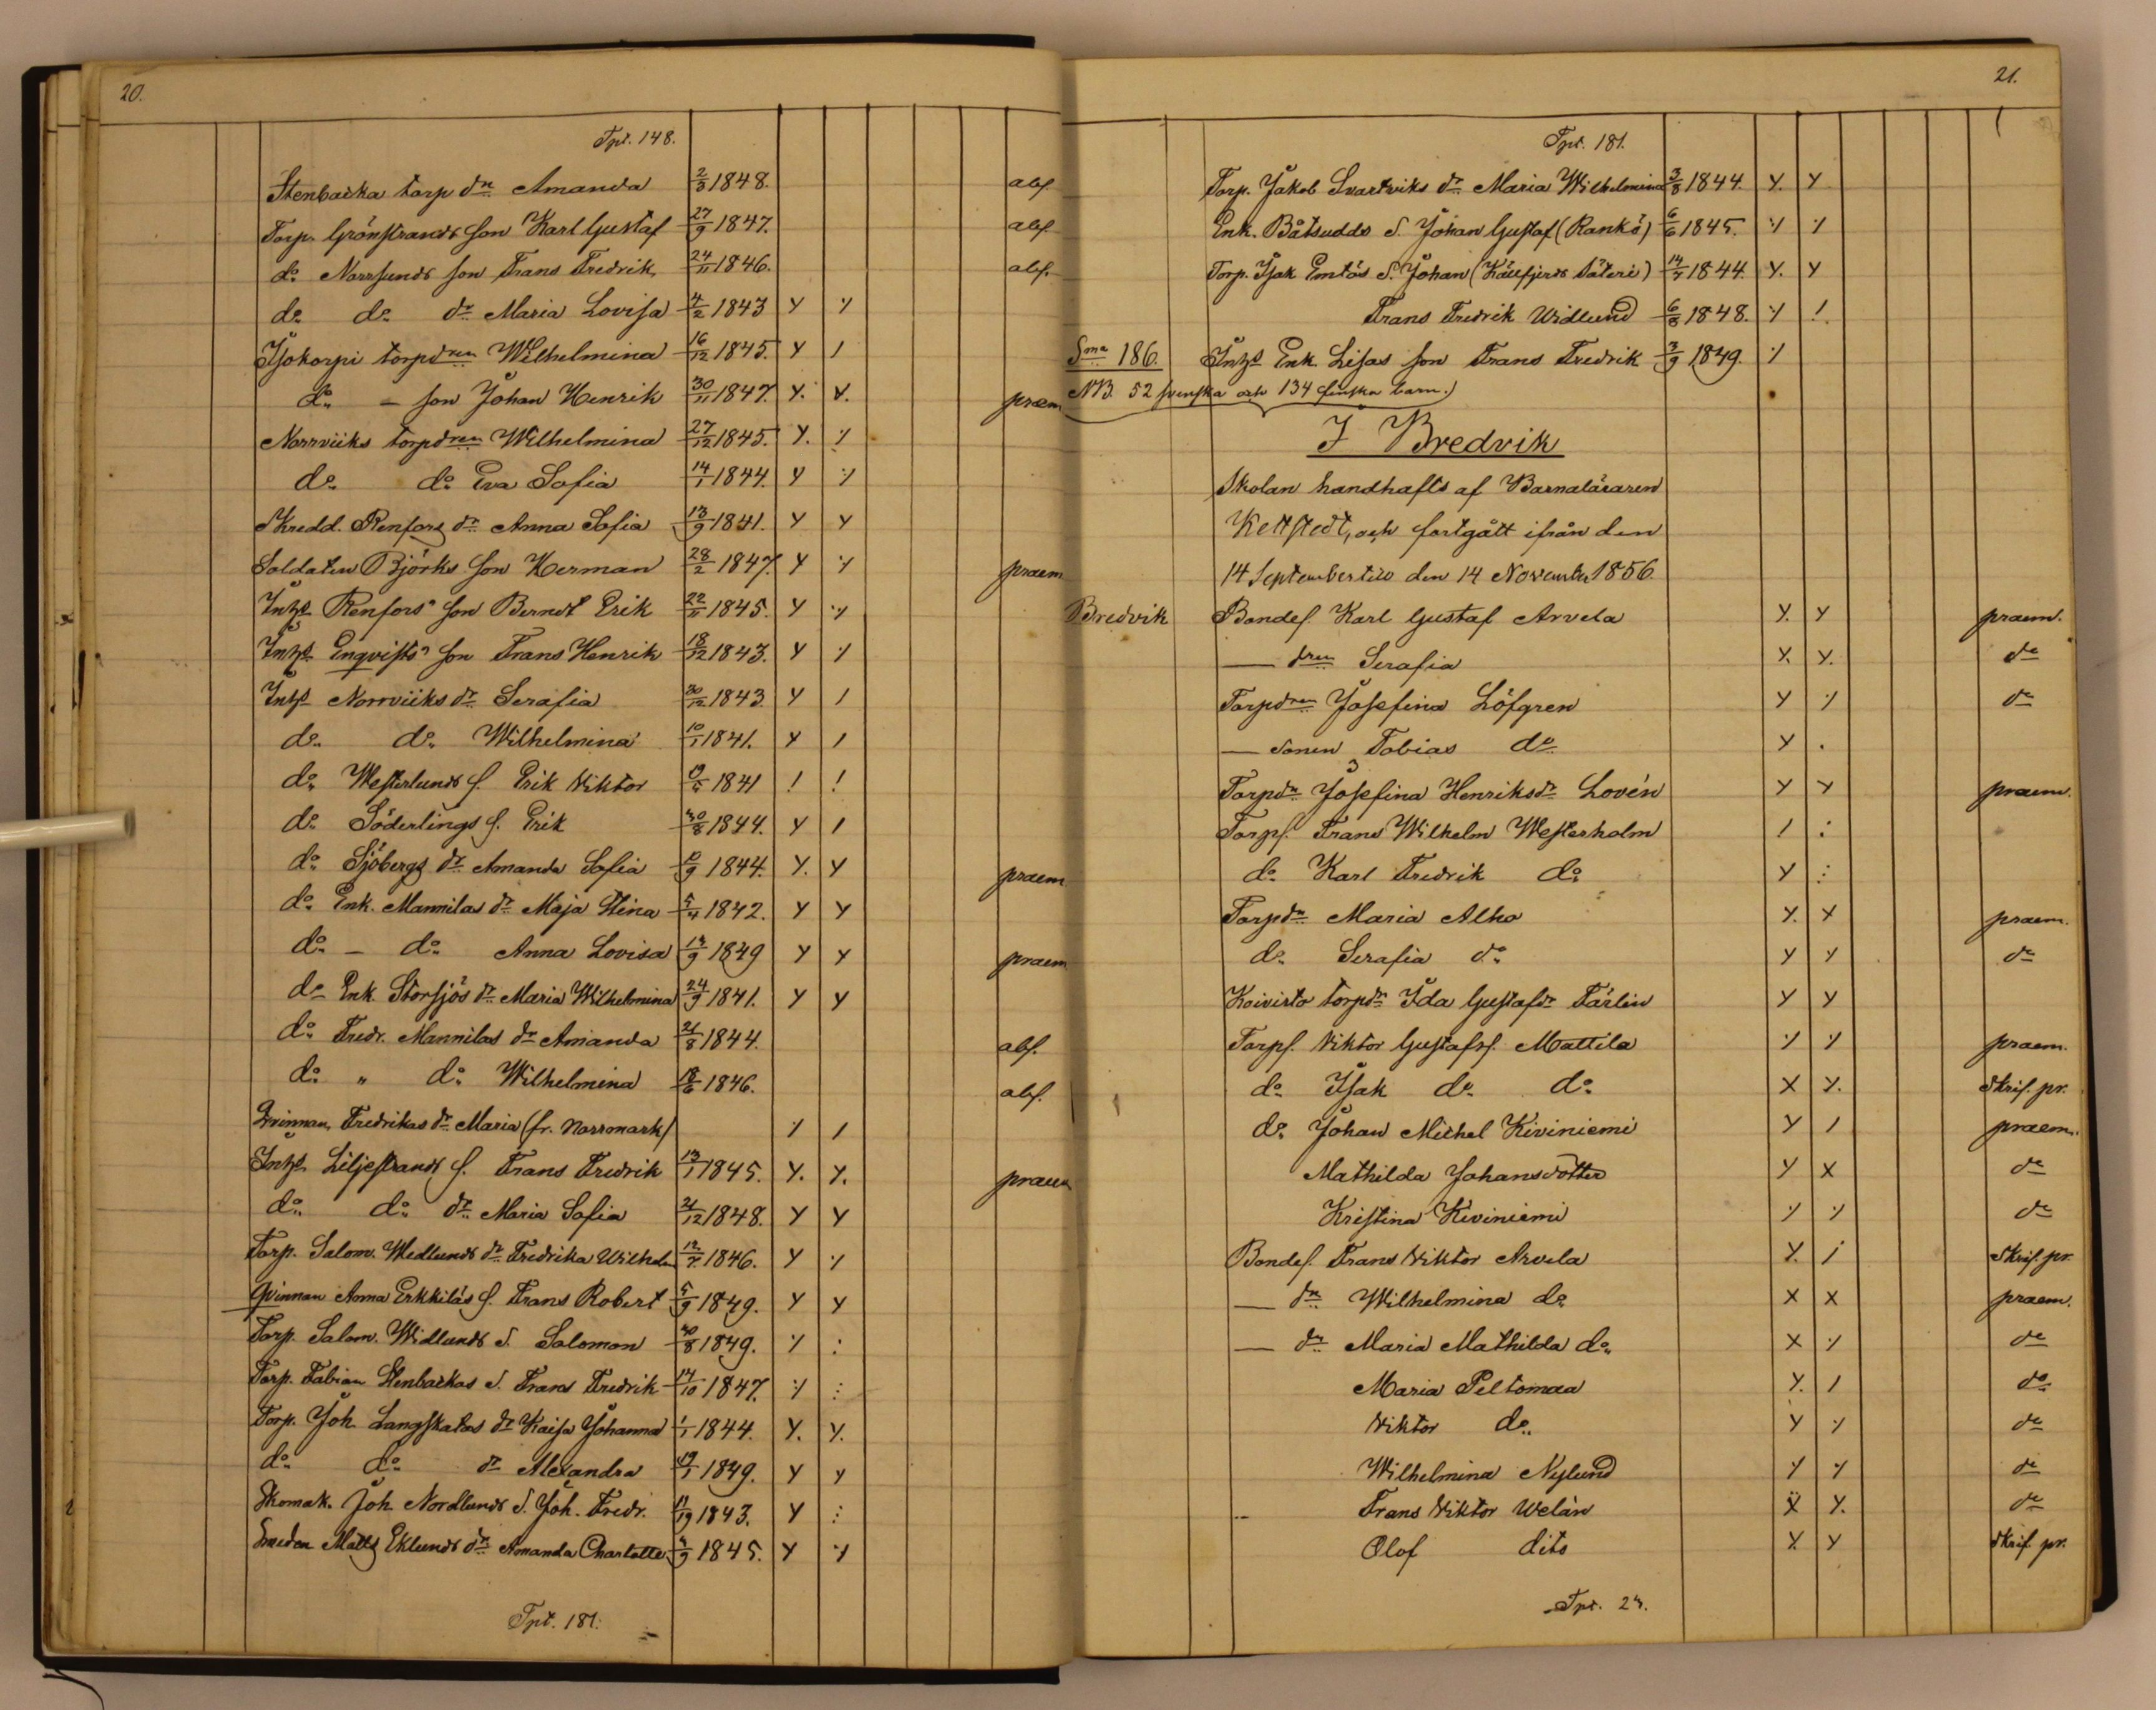 20.
Tpt. 148.
Stenbacka torp dn Amanda 2/3 1848. abs.
Torp. Grönstrands son Karl Gustaf 27/9 1847. abs.
do Norrsunds son Frans Fredrik 24/11 1846. abs.
do do dr Maria Lovisa 4/2 1843 Y ٪
Isokorpi torpdren Wilhelmina 16/12 1845. Y /
do — son Johan Henrik 30/11 1847. Y. Y. praem
Norrviiks torpdren Wilhelmina 27/12 1845. Y. ٪
do do Eva Sofia 14/1 1844. Y ٪
Skredd. Renfors dr Anna Sofia 13/9 1841. Y Y
Soldaten Björks son Herman 28/2 1847. Y ٪ praem
Inhs Renfors" son Berndt Erik 22/11 1845. Y ٪
Inhs Enqvists" son Frans Henrik 18/12 1843. Y ٪
Inhs Norrviiks dr Serafia 30/12 1843 Y /
do do Wilhelmina 10/1 1841. Y /
do Westerlunds s. Erik Viktor 1841 ! !
do Söderlings s. Erik 30/8 1844. Y /
do Sjöbergs dr Amanda Sofia 1844. Y. Y praem
do Enk. Mannilas dr Maja Stina 5/4 1842. Y Y
do — do Anna Lovisa 13/9 1849 Y Y praem
do Enk. Storsjös dr Maria Wilhelmina 24/9 1841. Y Y
do Fredr. Mannilas dr Amanda 21/8 1844. abs.
do " do Wilhelmina 18/6 1846. abs.
Qvinnan Fredrikas dr Maria (fr. Norrmark) ٪ /
Inhs Liljestrands s. Frans Fredrik 13/1 1845. Y. Y. praem
do do dr Maria Sofia 21/12 1848. Y Y
Torp. Salom. Widlunds dr Fredrika Wilhelm 12/7 1846. Y ٪
Qvinnan Anna Erkkiläs s. Frans Robert 5/9 1849. Y Y
Torp. Salom. Widlunds S. Salomon 30/8 1849. ٪ :
Torp. Fabian Stenbackas S. Frans Fredrik 14/10 1847. ٪ :
Torp. Joh. Langskatas dr Kaisa Johanna 1/1 1844. Y. Y.
do do dr Alexandra 1849. Y Y
Skomak. Joh. Nordlunds S. Joh. Fredr. 1843. Y :
Smeden Matts Eklunds dr Amanda Charlotte 1845. Y ٪
Tpt. 181.
21.
Tpt. 181.
Torp. Jakob Svartviks dr Maria Wilhelmina 3/8 1844. Y. Y
Enk. Båtsudds S. Johan Gustaf (Rankö) 6/6 1845. ٪ ٪
Torp. Isak Emtös S. Johan (Källfjerds Säteri) 14/7 1844. Y. Y
Frans Fredrik Widlund 6/8 1848. ٪ !.
Sma 186. Inhs Enk. Lisas son Frans Fredrik 1849. ٪
NB. 52 svenska och 134 finska barn.)
I Bredvik
Skolan handhafts af Barnaläraren
Kettstedt, och fortgått ifrån den
14 September till den 14 November 1856.
Bredvik Bondes. Karl Gustaf Arvela Y. Y praem.
— dren Serafia Y. Y. do
Torpdren Josefina Löfgren Y ٪ do
— Sonen Tobias do Y .
Torpdn Josefina Henriksdr Lovén Y Y praem.
Torps. Frans Wilhelm Westerholm / :
do Karl Fredrik do Y :
Torpdn Maria Alho Y. X praem.
do Serafia do Y Y do
Koivisto torpdr Ida Gustafdr Färlin Y Y
Torps. Viktor Gustafss. Mattila ٪ ٪ praem.
do Isak do do X Y. Skrif. pr.
do Johan Michel Kiviniemi Y / praem.
Mathilda Johansdotter Y X do
Kristina Kiviniemi ٪ ٪ do
Bondes. Frans Viktor Arvela Y. / Skrif. pr.
— dn Wilhelmina do X X praem.
— dn Maria Mathilda do X ٪ do
Maria Peltomaa Y. / do
Viktor do Y ٪ do
Wilhelmina Nylund ٪ ٪ do
Frans Viktor Welän X Y. do
Olof dito Y. Y Skrif. pr.
Tpt. 23.